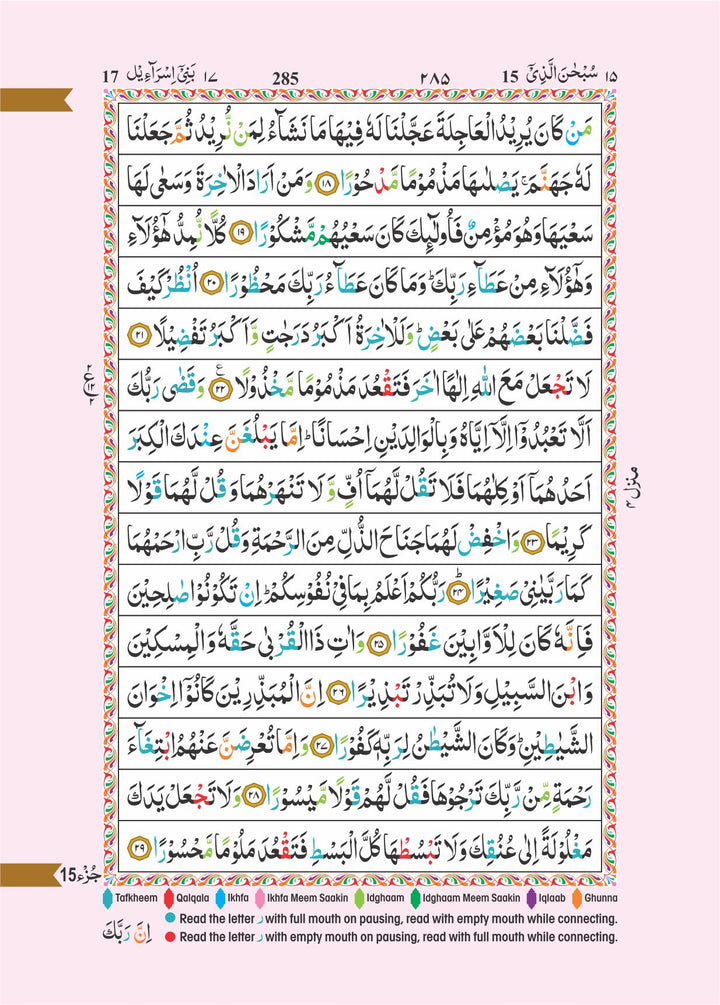 ١٥ سُبْحٰنَ الَّذِىْٓ 15 ٢٨٥ 285 ١٧ بَنِىْٓ اِسْرَآءِيْل 17
مَنْ كَانَ يُرِيْدُ الْعَاجِلَةَ عَجَّلْنَا لَهٗ فِيْهَا مَا نَشَآءُ لِمَنْ نُّرِيْدُ ثُمَّ جَعَلْنَا
لَهٗ جَهَنَّمَ ۚ يَصْلٰىهَا مَذْمُوْمًا مَّدْحُوْرًا ١٨ وَمَنْ اَرَادَ الْاٰخِرَةَ وَسَعٰى لَهَا
سَعْيَهَا وَهُوَ مُؤْمِنٌ فَاُولٰٓئِكَ كَانَ سَعْيُهُمْ مَّشْكُوْرًا ١٩ كُلًّا نُّمِدُّ هٰٓؤُلَآءِ
وَهٰٓؤُلَآءِ مِنْ عَطَآءِ رَبِّكَ ؕ وَمَا كَانَ عَطَآءُ رَبِّكَ مَحْظُوْرًا ٢٠ اُنْظُرْ كَيْفَ
فَضَّلْنَا بَعْضَهُمْ عَلٰى بَعْضٍ ؕ وَلَلْاٰخِرَةُ اَكْبَرُ دَرَجٰتٍ وَّاَكْبَرُ تَفْضِيْلًا ٢١
لَا تَجْعَلْ مَعَ اللّٰهِ اِلٰهًا اٰخَرَ فَتَقْعُدَ مَذْمُوْمًا مَّخْذُوْلًا ٢٢ ع وَقَضٰى رَبُّكَ
٢ ع ١٢ ٢
اَلَّا تَعْبُدُوْٓا اِلَّآ اِيَّاهُ وَبِالْوَالِدَيْنِ اِحْسَانًا ؕ اِمَّا يَبْلُغَنَّ عِنْدَكَ الْكِبَرَ
اَحَدُهُمَآ اَوْ كِلٰهُمَا فَلَا تَقُلْ لَّهُمَآ اُفٍّ وَّلَا تَنْهَرْهُمَا وَقُلْ لَّهُمَا قَوْلًا
منزل ٤
كَرِيْمًا ٢٣ وَاخْفِضْ لَهُمَا جَنَاحَ الذُّلِّ مِنَ الرَّحْمَةِ وَقُلْ رَّبِّ ارْحَمْهُمَا
كَمَا رَبَّيٰنِىْ صَغِيْرًا ؕ ٢٤ رَبُّكُمْ اَعْلَمُ بِمَا فِىْ نُفُوْسِكُمْ ؕ اِنْ تَكُوْنُوْا صٰلِحِيْنَ
فَاِنَّهٗ كَانَ لِلْاَوَّابِيْنَ غَفُوْرًا ٢٥ وَاٰتِ ذَا الْقُرْبٰى حَقَّهٗ وَالْمِسْكِيْنَ
وَابْنَ السَّبِيْلِ وَلَا تُبَذِّرْ تَبْذِيْرًا ٢٦ اِنَّ الْمُبَذِّرِيْنَ كَانُوْٓا اِخْوَانَ
الشَّيٰطِيْنِ ؕ وَكَانَ الشَّيْطٰنُ لِرَبِّهٖ كَفُوْرًا ٢٧ وَاِمَّا تُعْرِضَنَّ عَنْهُمُ ابْتِغَآءَ
رَحْمَةٍ مِّنْ رَّبِّكَ تَرْجُوْهَا فَقُلْ لَّهُمْ قَوْلًا مَّيْسُوْرًا ٢٨ وَلَا تَجْعَلْ يَدَكَ
مَغْلُوْلَةً اِلٰى عُنُقِكَ وَلَا تَبْسُطْهَا كُلَّ الْبَسْطِ فَتَقْعُدَ مَلُوْمًا مَّحْسُوْرًا ٢٩
جُزْء 15
Tafkheem Qalqala Ikhfa Ikhfa Meem Saakin Idghaam Idghaam Meem Saakin Iqlaab Ghunna
Read the letter ر with full mouth on pausing, read with empty mouth while connecting.
Read the letter ر with empty mouth on pausing, read with full mouth while connecting.
اِنَّ رَبَّكَ